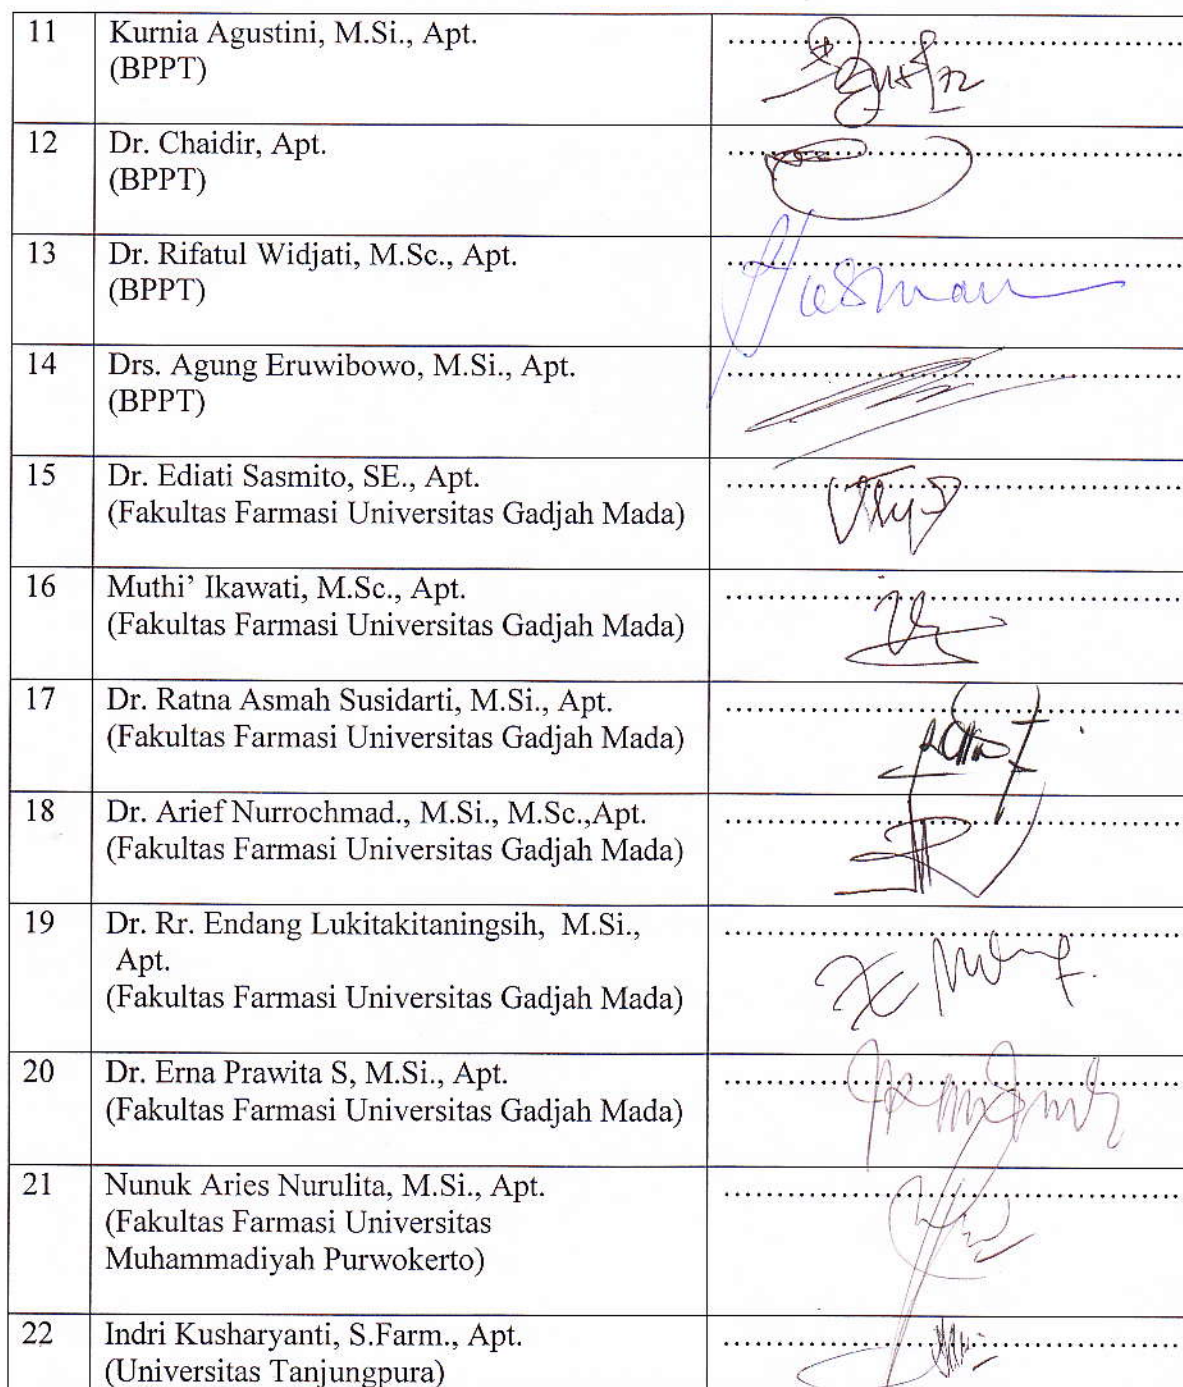 11 Kurnia Agustini, M.Si., Apt. ........................
(BPPT)
12 Dr. Chaidir, Apt. ........................
(BPPT)
13 Dr. Rifatul Widjati, M.Sc., Apt. ........................
(BPPT)
14 Drs. Agung Eruwibowo, M.Si., Apt. ........................
(BPPT)
15 Dr. Ediati Sasmito, SE., Apt. ........................
(Fakultas Farmasi Universitas Gadjah Mada)
16 Muthi’ Ikawati, M.Sc., Apt. ........................
(Fakultas Farmasi Universitas Gadjah Mada)
17 Dr. Ratna Asmah Susidarti, M.Si., Apt. ........................
(Fakultas Farmasi Universitas Gadjah Mada)
18 Dr. Arief Nurrochmad., M.Si., M.Sc.,Apt. ........................
(Fakultas Farmasi Universitas Gadjah Mada)
19 Dr. Rr. Endang Lukitakitaningsih, M.Si., ........................
Apt.
(Fakultas Farmasi Universitas Gadjah Mada)
20 Dr. Erna Prawita S, M.Si., Apt. ........................
(Fakultas Farmasi Universitas Gadjah Mada)
21 Nunuk Aries Nurulita, M.Si., Apt. ........................
(Fakultas Farmasi Universitas
Muhammadiyah Purwokerto)
22 Indri Kusharyanti, S.Farm., Apt. ........................
(Universitas Tanjungpura)